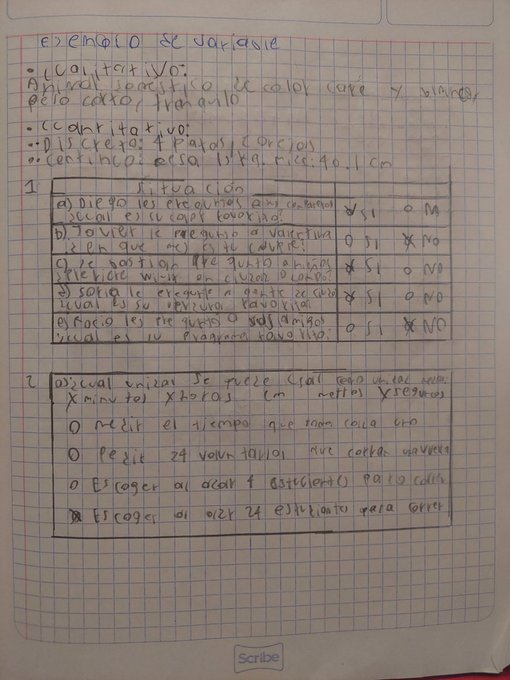 Ejemplo de variable
• Cualitativo:
Animal domestico, de color café y blanco,
pelo corto, tranquilo
• Cuantitativo:
•• Discreto: 4 patas, 2 orejas
•• Continuo: pesa 15 kg, mide: 40.1 cm
1 Situación
a) Diego les pregunta a sus compañeros
¿cual es su color favorito? si o no
b) Javier le pregunto a Valentina
¿en que mes es tu cumple? o si no
c) Sebastian pregunto a niños
prefiere vivir en ciudad o campo? si o no
d) Sofia le pregunta a gente de
¿cual es su favorita? si o no
e) Rocio les pregunto a sus amigos
¿cual es su programa favorito? o si no
2 a) ¿cual unidad se puede usar como unidad
x minutos x horas cm metros x segundos
o medir el tiempo que cada uno
o Pedir 24 voluntarios que corran
o Escoger al azar 4 estudiantes para correr
Escoger al azar 24 estudiantes para correr
Scribe